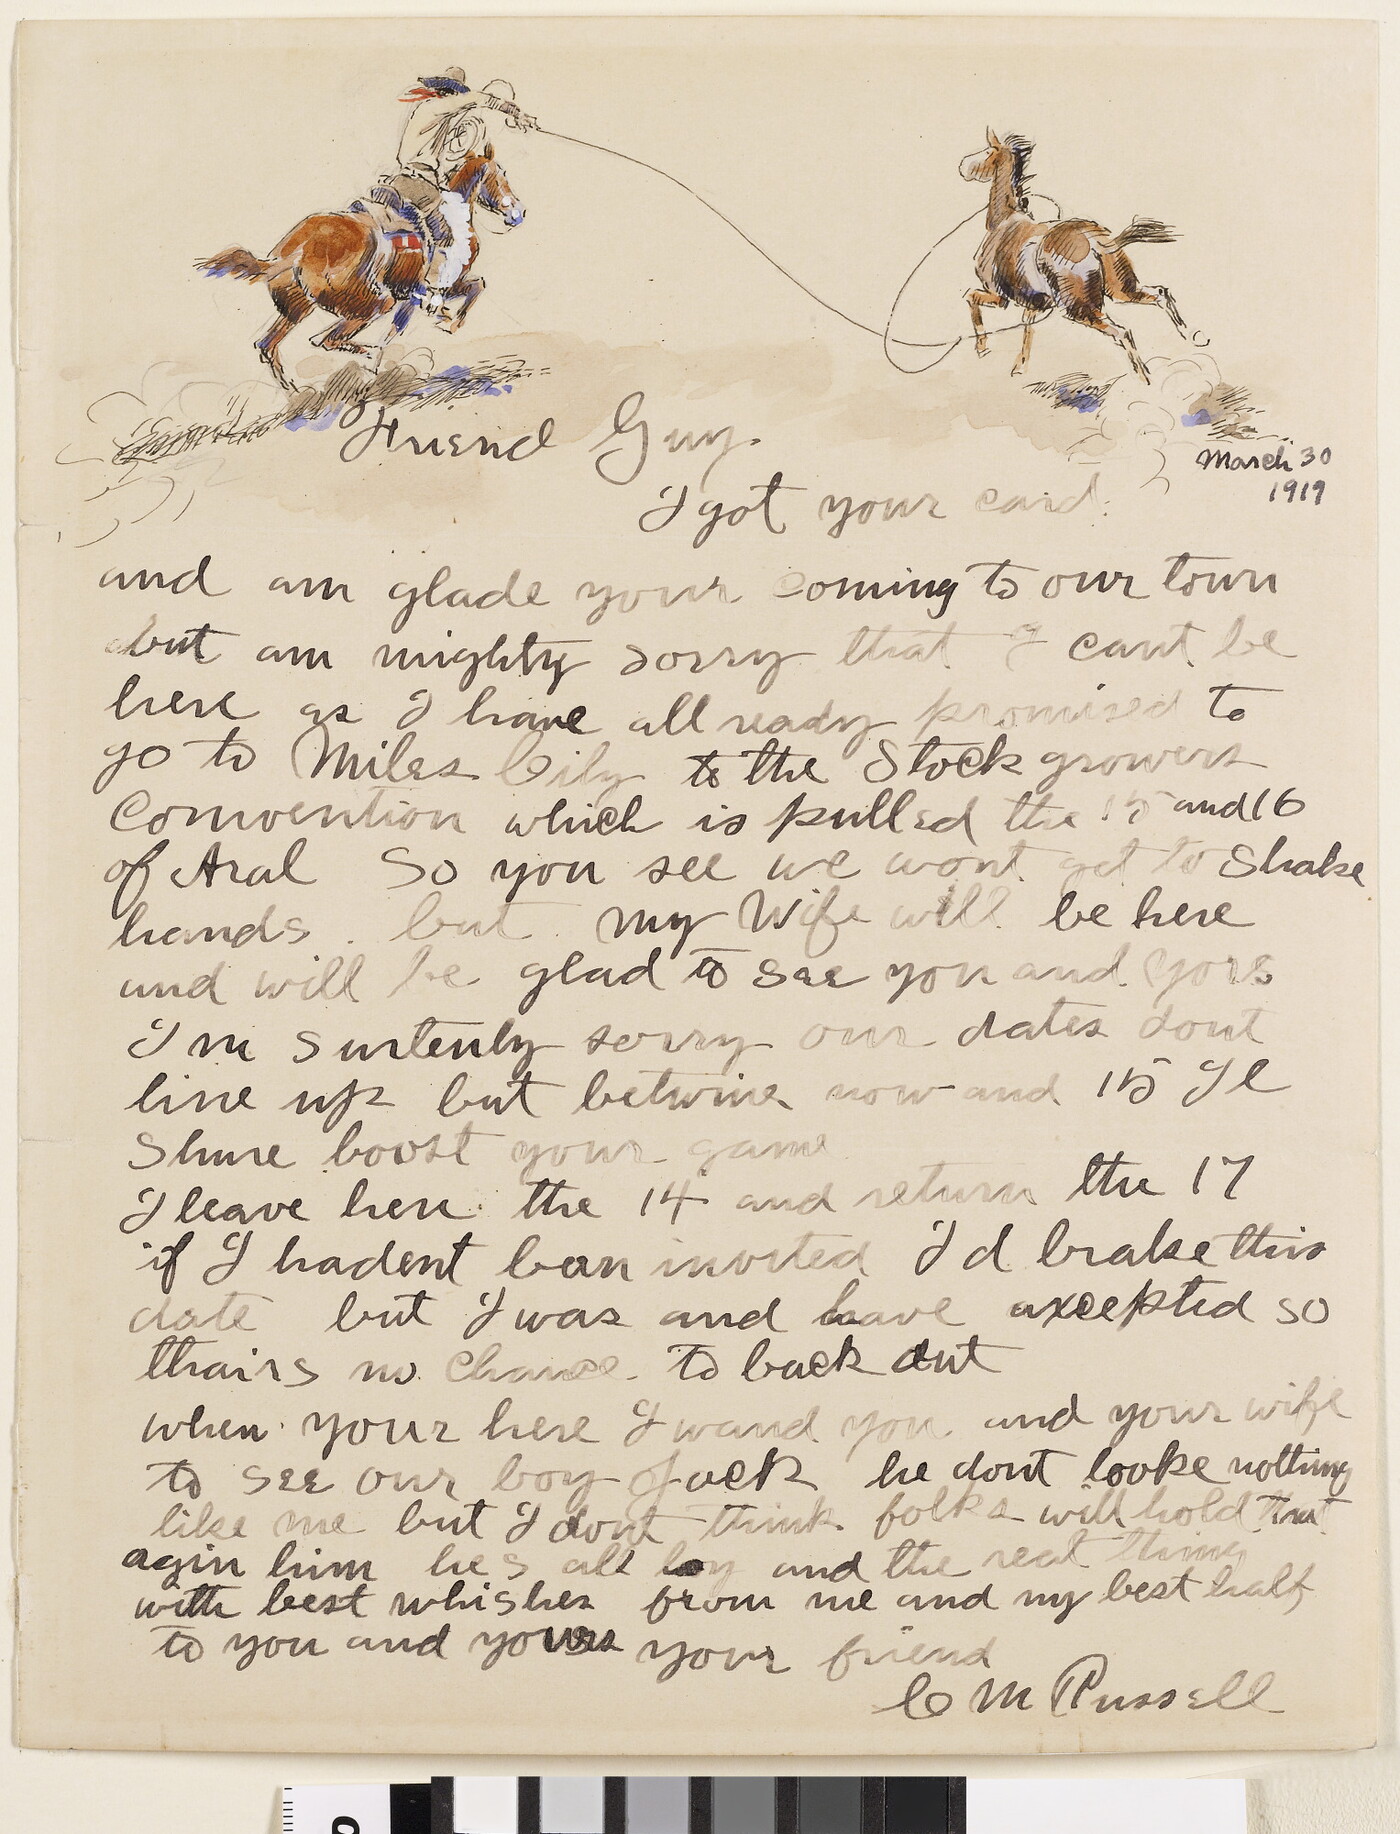 Friend Guy.
March 30
1919
I got your card.
and am glade your coming to our town
but am mighty sorry that I cant be
here as I have all ready promised to
go to Miles City to the Stock growers
Convention which is pulled the 15 and 16
of Aral So you see we wont get to Shake
hands. but my Wife will be here
and will be glad to see you and yors
I'm surtenly sorry our dates dont
line up but betwine now and 15 Il
Shure boost your game
I leave here the 14 and return the 17
if I hadent bean invited I'd brake this
date but I was and have axcepted so
thairs no chance to back out
when your here I wand you and your wife
to see our boy Jack he dont looke nothing
like me but I dont think folks will hold that
agin him hes all boy and the real thing
with best whishes from me and my best half
to you and yours your friend
C M Russell